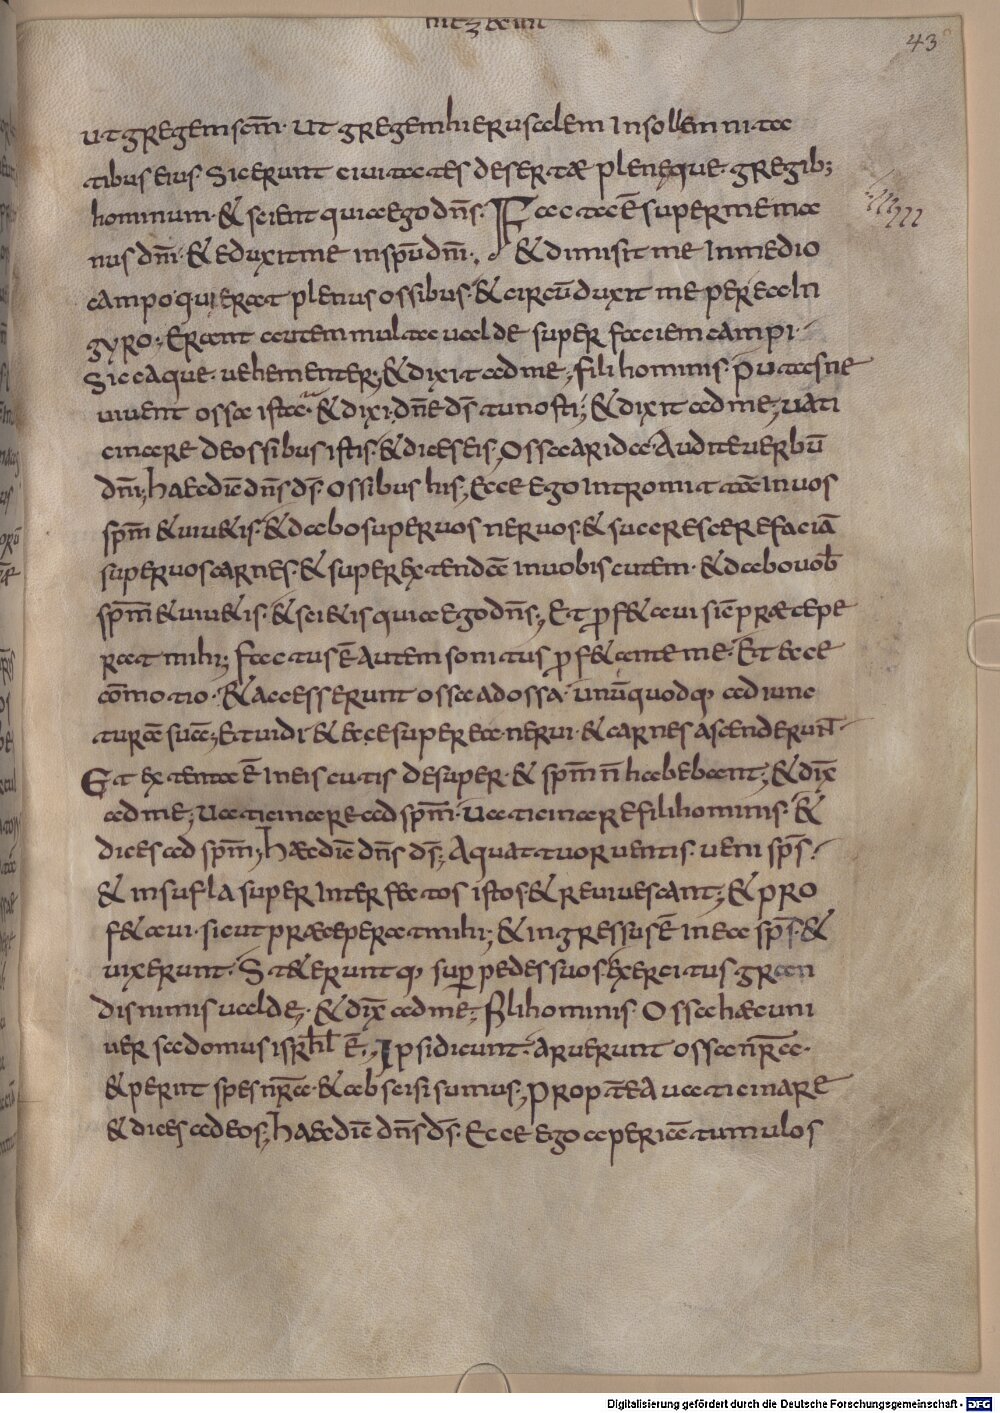 43
ut gregem scm̄. Ut gregem hierusalem In sollemnita
tibus eius. Sic erunt ciuitates desertæ plenęque. gregib;
hominum. & scient quia ego dn̄s. Facta ē super me ma
nus dn̄i. & eduxit me in spū dn̄i. & dimisit me In medio
campo qui erat plenus ossibus. & circū duxit me per ea In
gyro; Erant autem multa ualde super faciem campi.
Siccaque. uehementer; & dixit ad me; fili hominis. putasne
uiuent ossa ista. & dixi. dn̄e ds̄ tu nosti; & dixit ad me; uati
cinare de ossibus istis. & dices eis; Ossa arida. Audite uerbū
dn̄i; haec dic̄ dn̄s ds̄. ossibus his; Ecce ego Intromittā In uos
spm̄ & uiu&is. & dabo super uos neruos. & succrescere faciā
super uos carnes. & superextendā in uobis cutem. & dabo uob̄
spm̄ & uiu&is. & sci&is quia ego dn̄s; Et prof&aui sic̄ præcepe
rat mihi; factus ē Autem sonitus prof&ante me. Et ecce
cōmotio. & accesserunt ossa ad ossa. unūquodq; ad iunc
turā suā; Et uidi. & ecce super ea. nerui. & carnes ascenderun̄t
Et extenta ē In eis cutis desuper. & spm̄ n̄ habebant; & dix̄
ad me; Uaticinare ad spm̄. uaticinare fili hominis. &
dices ad spm̄; hæc dic̄ dn̄s ds̄; A quattuor uentis. ueni sps̄.
& insufla super Interfectos istos & reuiuescant; & pro
f&aui. sicut præceperat mihi; & ingressus ē In ea sps̄. &
uixerunt. St&erunt q; sup̄ pedes suos. exercitus gran
dis nimis ualde; & dix̄ ad me; Fili hominis. Ossa hæc uni
uersa domus isrhl̄ ē. Ipsi dicunt. aruerunt ossa nr̄a.
& perīit spes nr̄a. & abscisi sumus; Propt̄ea uaticinare
& dices ad eos; haec dic̄ dn̄s ds̄. Ecce ego aperiā tumulos
Digitalisierung gefördert durch die Deutsche Forschungsgemeinschaft - DFG